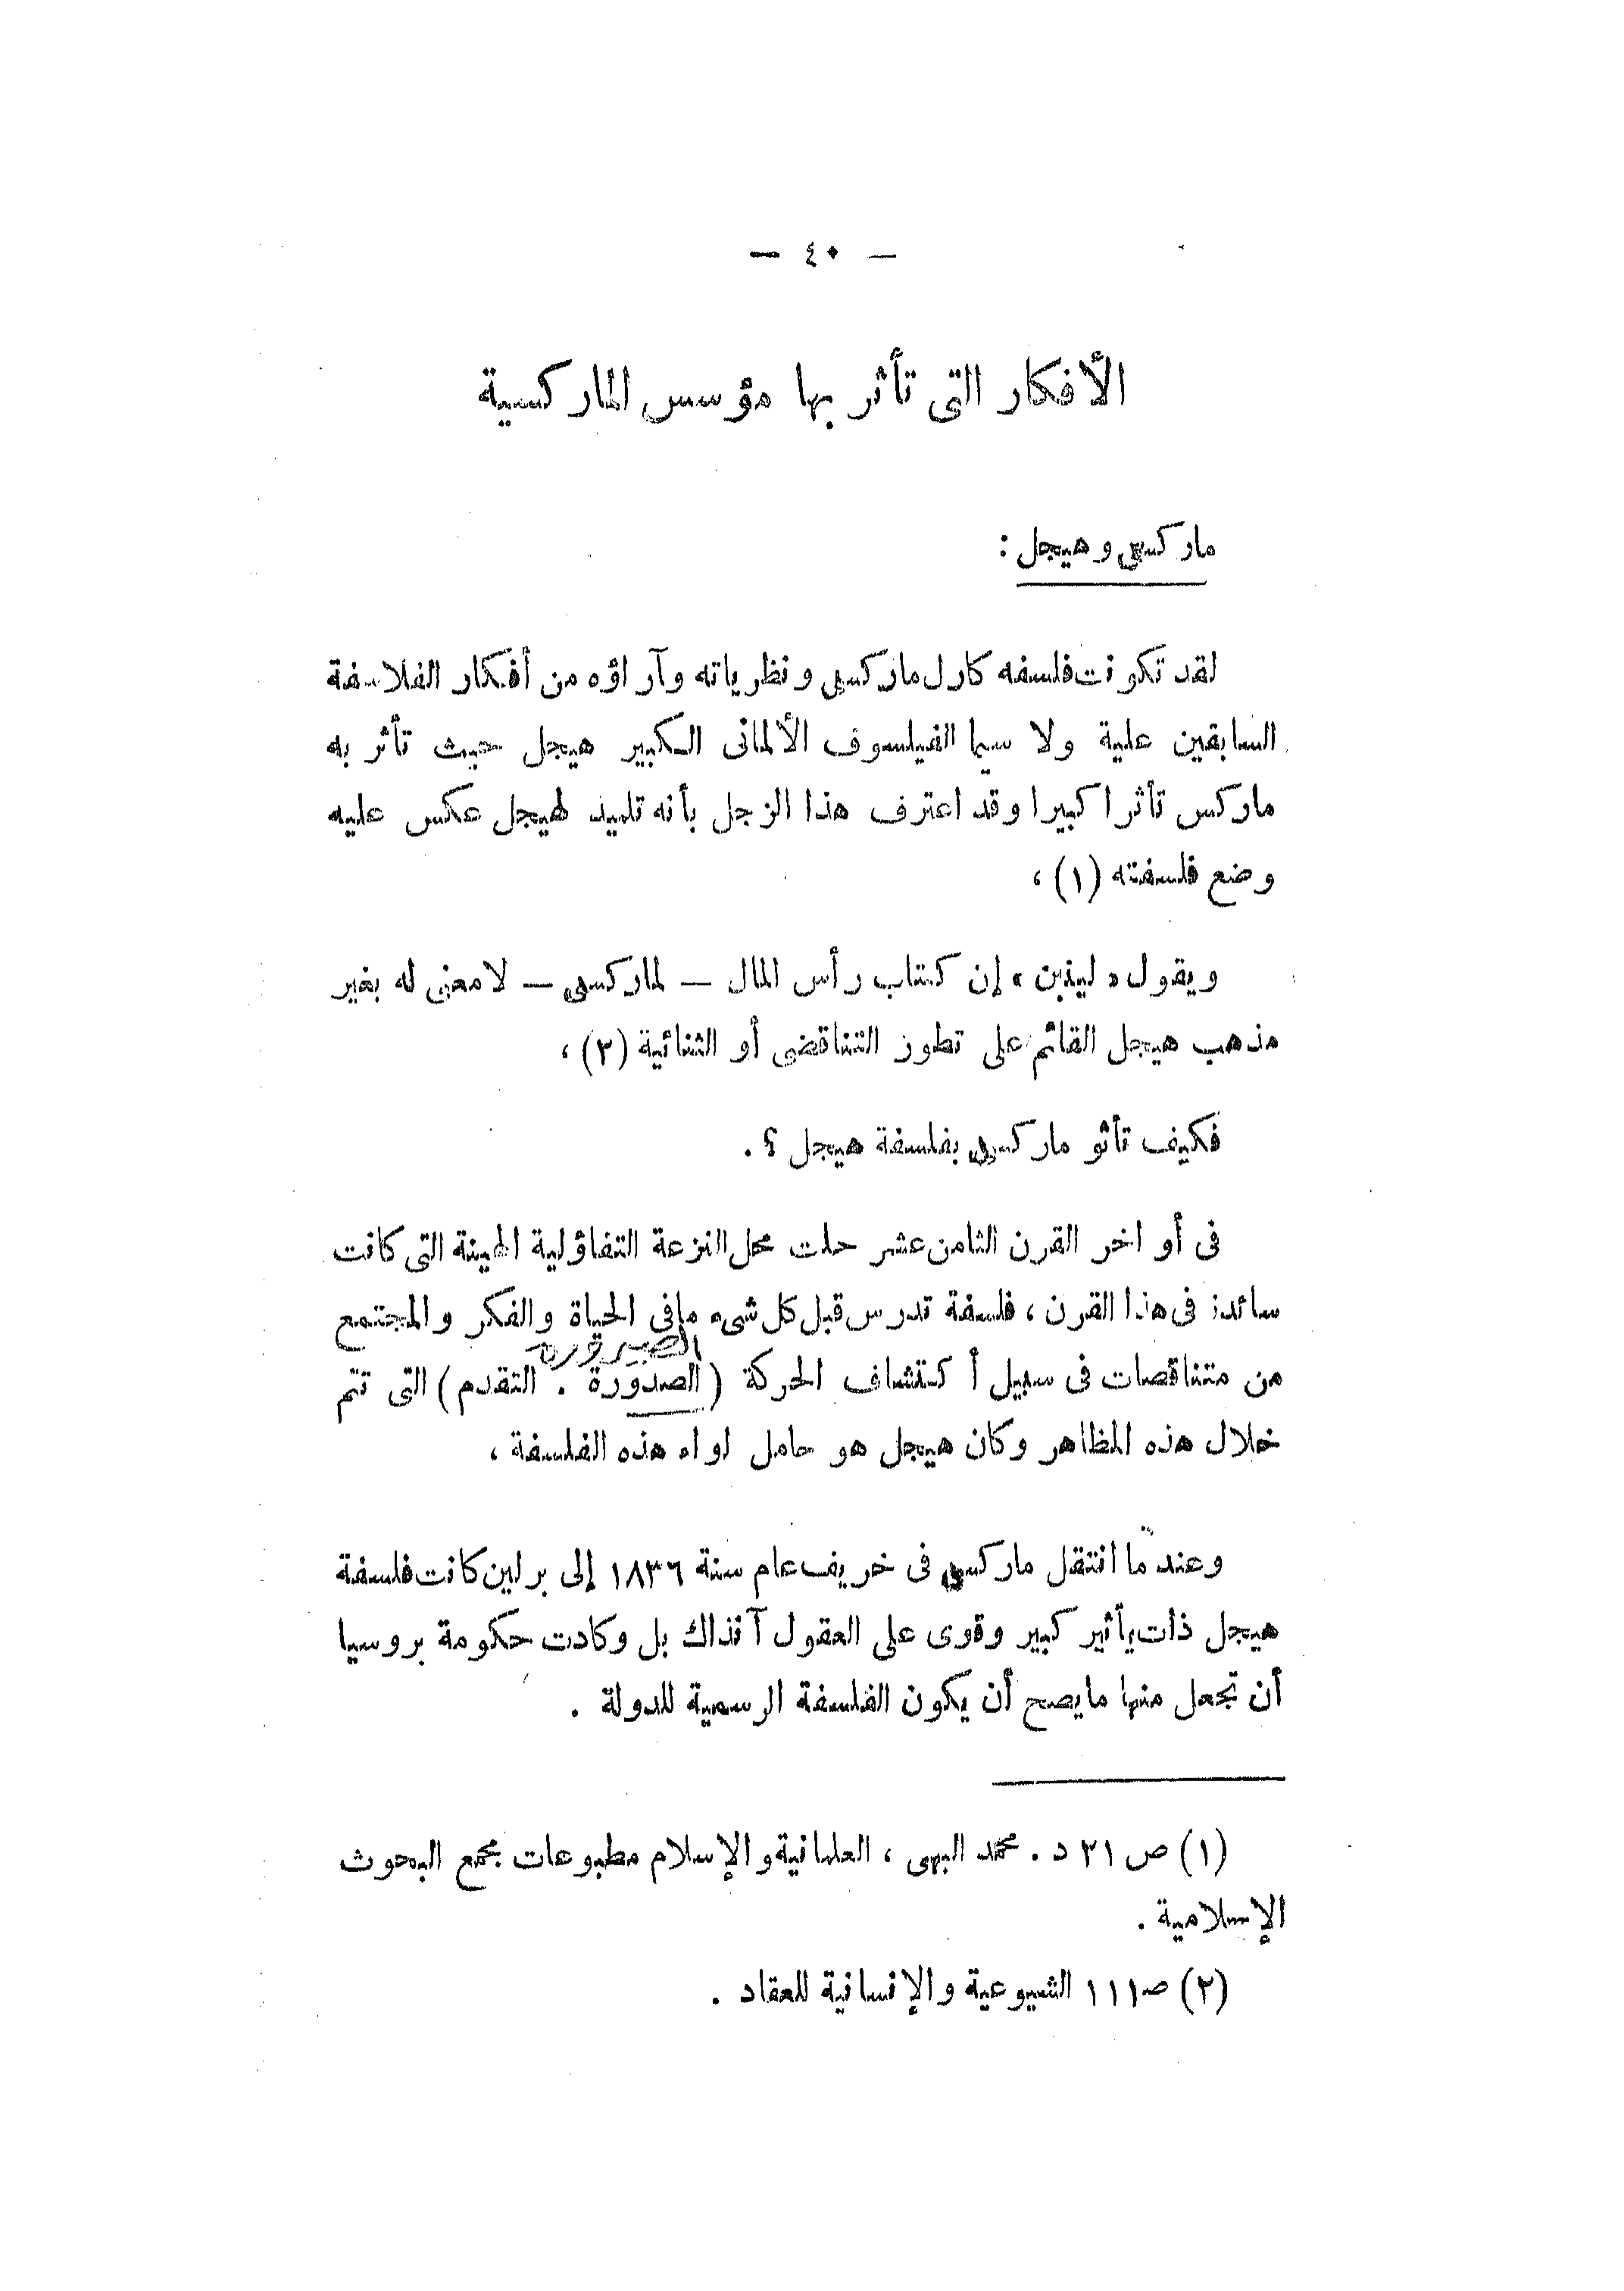 — ٤٠ —
الأفكار التى تأثر بها مؤسس الماركسية
ماركس وهيجل :
لقد تكونت فلسفه كارل ماركس ونظرياته وآراؤه من أفكار الفلاسفة
السابقين علية ولا سيما الفيلسوف الألمانى الكبير هيجل حيث تأثر به
ماركس تأثرا كبيرا وقد اعترف هذا الرجل بأنه تلميذ لهيجل عكس عليه
وضع فلسفته (١) ،
ويقول « لينين » إن كتاب رأس المال — لماركس — لا معنى له بغير
مذهب هيجل القائم على تطور التناقض أو الثنائية (٢) ،
فكيف تأثر ماركس بفلسفة هيجل ؟ .
فى أواخر القرن الثامن عشر حلت محل النزعة التفاؤلية الهينة التى كانت
سائدة فى هذا القرن ، فلسفة تدرس قبل كل شىء مافى الحياة والفكر والمجتمع
الصيرورة
من متناقصات فى سبيل أكتشاف الحركة ( الصدورة . التقدم ) التى تتم
خلال هذه المظاهر وكان هيجل هو حامل لواء هذه الفلسفة ،
وعندما انتقل ماركس فى خريف عام سنة ١٨٣٦ إلى برلين كانت فلسفة
هيجل ذات تأثير كبير وقوى على العقول آنذاك بل وكادت حكومة بروسيا
أن تجعل منها مايصح أن يكون الفلسفة الرسمية للدولة .
(١) ص ٢١ د . محمد البهى ، العلمانية والإسلام مطبوعات مجمع البحوث
الإسلامية .
(٢) صـ ١١١ الشيوعية والإنسانية للعقاد .